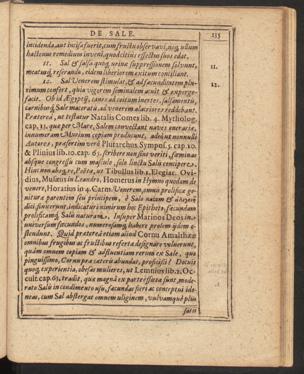 DE SALE. 215
incidenda, aut incisa fuerit, cum fructu observavi, nec ullum
hactenus remedium inveni, quod citius effectus suos edat.
11. Sal & falsa quoq; urinæ suppressionem solvunt,
meatusq; reserando, eidem liberiorem exitum conciliant.
12. Sal Venerem stimulat, & ad fœcunditatem plurimum
confert, quia vigorem seminalem auxit & exporge-
facit. Ob id Ægyptij, canes ad coitum inertes, salsamentis,
carnibusq; Sale maceratis, ad venerem alacriores reddebant.
Præterea, ut testatur Natalis Comes lib. 4. Mytholog.
cap. 13. quæ per Mare, Salem convectant naves onerariæ,
innumeram Murium copiam producunt, adeo ut nonnulli
Autores, præsertim verò Plutarchus Sympos. 5. cap. 10.
& Plinius lib. 10. cap. 65. scribere non sint veriti, fœminas
absque congressu cum masculo, solo linctu Salis concipere.
Hinc non absq; re, Poëta, ac Tibullus lib. 1. Elegiar. Ovi-
dius, Musæus in Leandro, Homerus in Hymno quodam de
venere, Horatius in 4. Carm. Venerem, omnis prolificæ ge-
nituræ parentem seu principem, è Sale natam &
dici finxerunt, indicaturi nimirum hoc Epitheto fœcundam
prolificamq; Salis naturam. Insuper Marinos Deos in
universum fœcundos, numerosamq; habere prolem ijdem o-
stendunt. Quid præterea etiam aliud Cornu Amaltheæ
omnibus frugibus ac fructibus referta designare voluerunt,
quàm omnem copiam & affluentiam rerum ex Sale, quo
pinguissimo, Cornu præ cæteris abundat, proficisci? Docuit
quoq; experientia, obesas mulieres, ut Lemnius lib. 2. Oc-
cult. cap. 61. tradit, quæ magna ex parte effœtæ sunt, mode-
rato Salis in condimento usu, fœcundas fieri ac conceptui ido-
neas, cum Sal abstergat omnem uliginem, vulvamque plus
satis
11.
12.